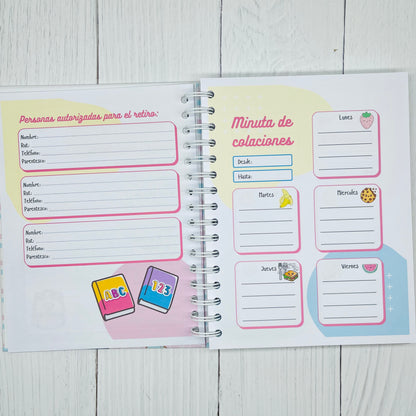 Personas autorizadas para el retiro:
Nombre:
Rut:
Teléfono:
Parentesco:
Nombre:
Rut:
Teléfono:
Parentesco:
Nombre:
Rut:
Teléfono:
Parentesco:
ABC
123
Minuta de
colaciones
Desde:
Hasta:
Lunes
Martes
Miércoles
Jueves
Viernes